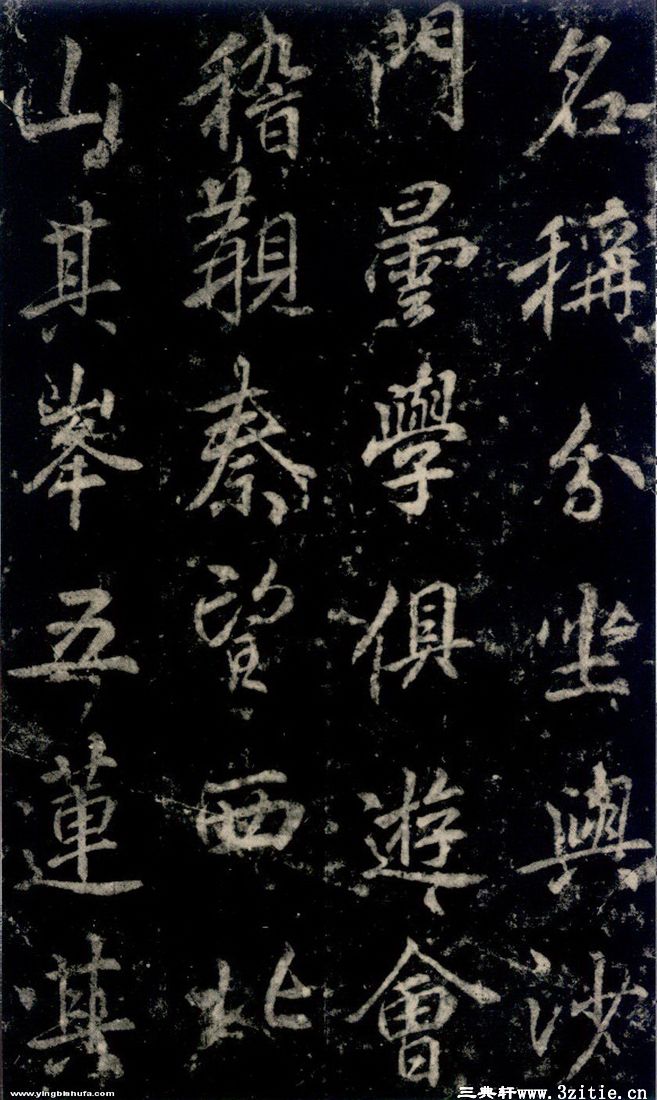 名稱分坐與沙
門曇學俱遊會
稽覯秦望西北
山其峯五蓮其
www.yingbishufa.com
三典轩www.3zitie.cn